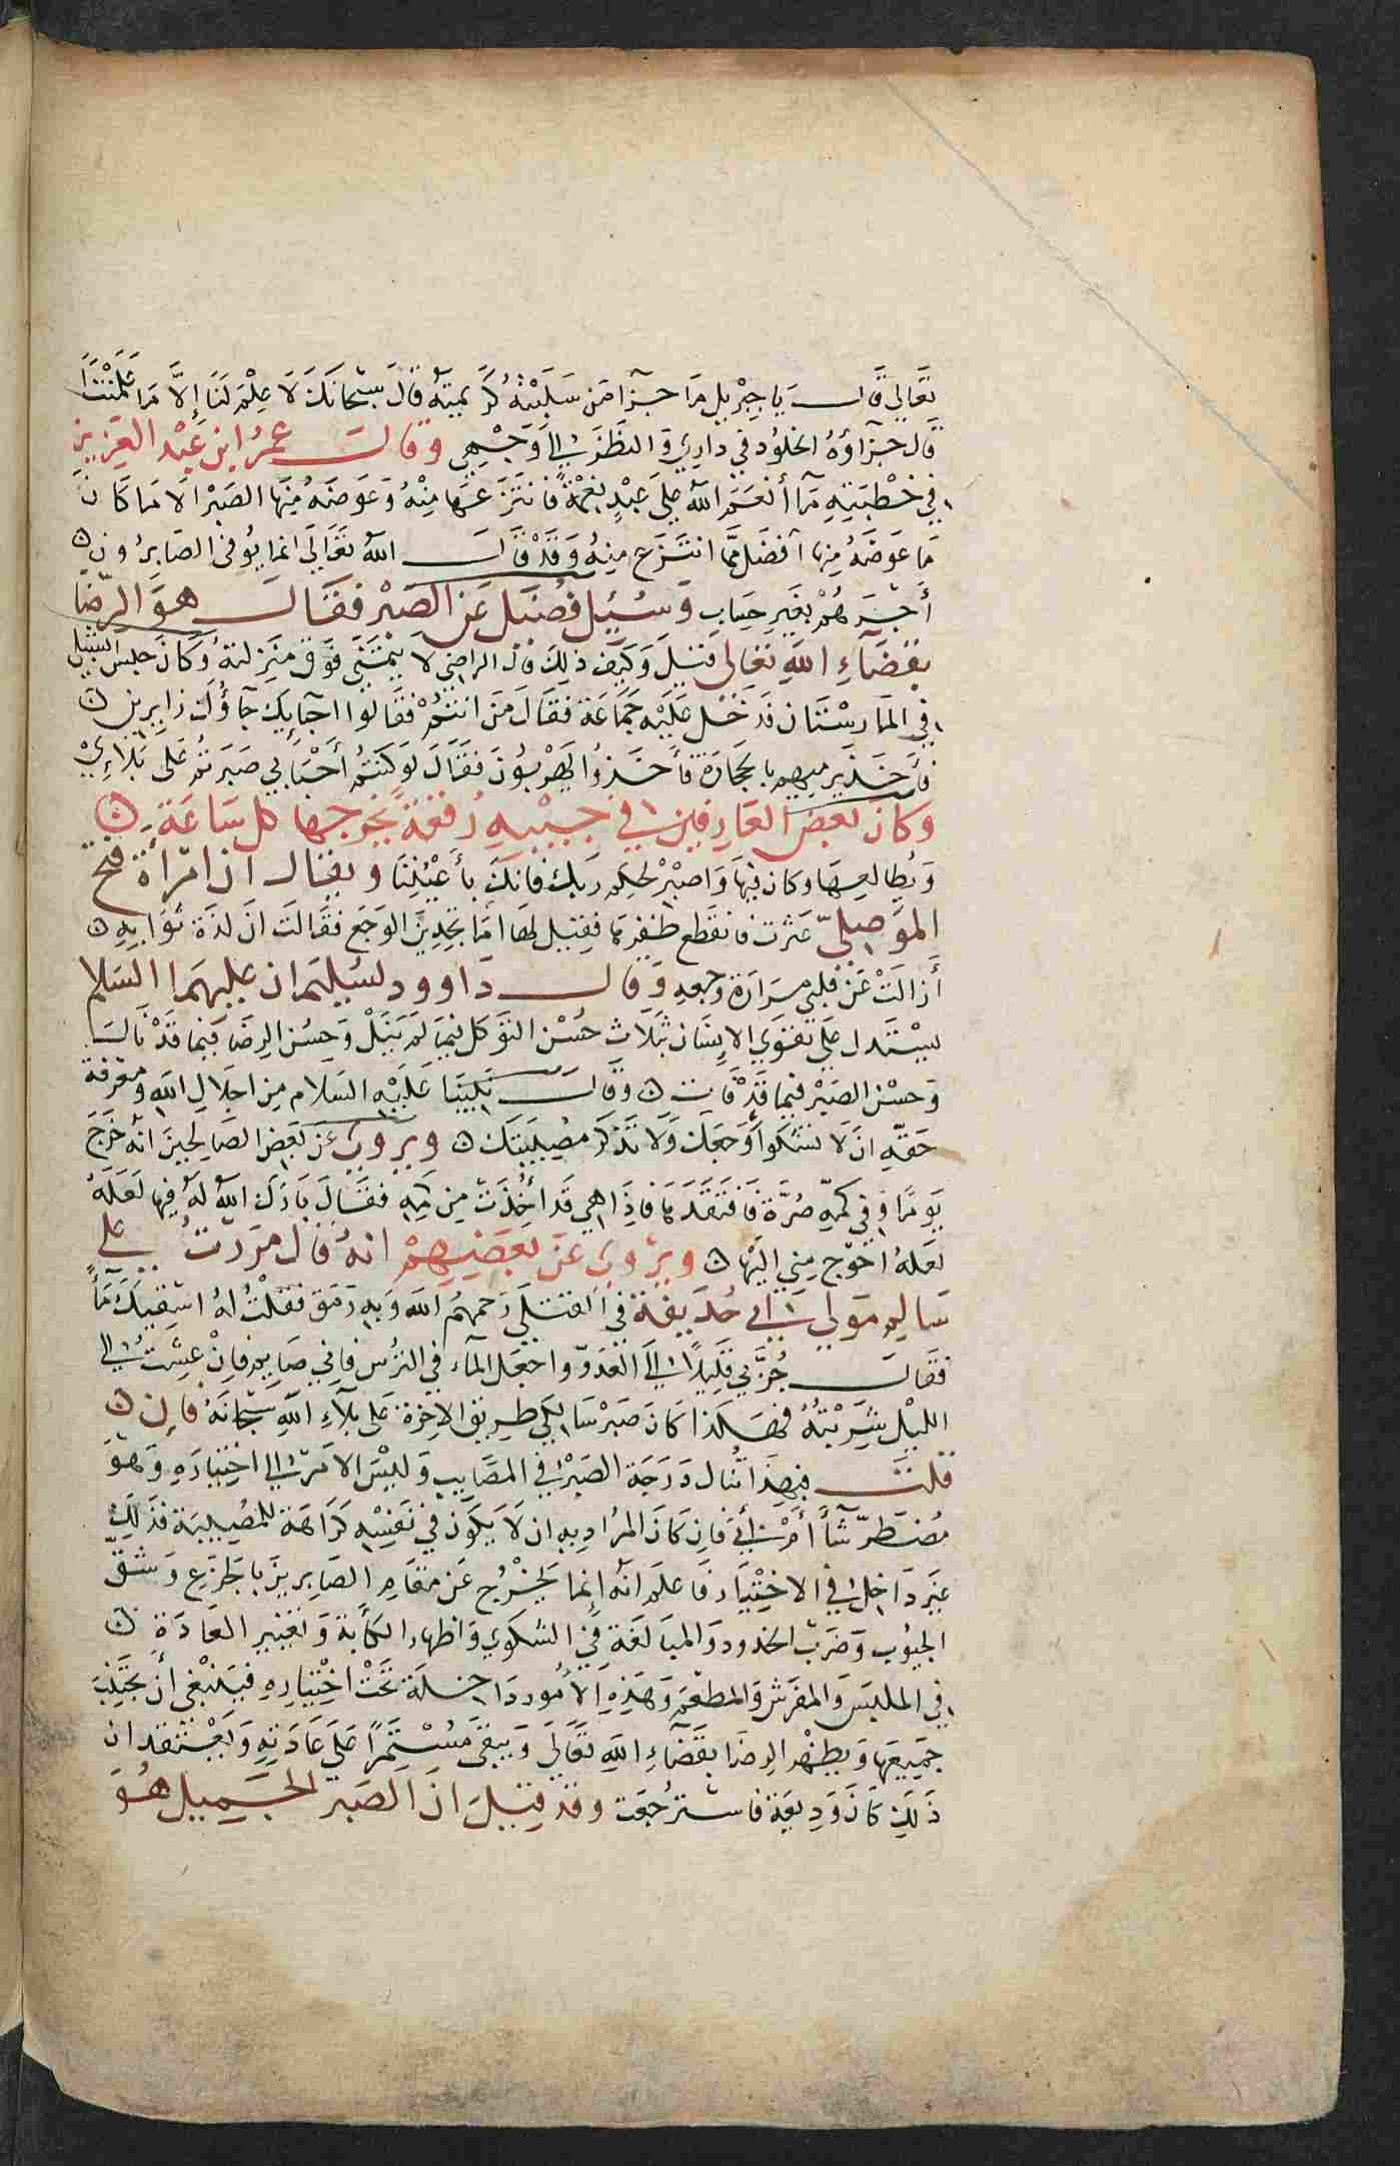 تعالي قال يا جبريل ما جزا من سلبته كريمته قال سبحانك لا علم لنا إلا ما علمتنا
قال جزاؤه الخلود في داري والنظر الي وجهي وقال عمر ابن عبد العزيز
في خطبته ما أنعم الله علي عبد نعمة فانتزعها منه وعوضه منها الصبر الا ما كان
ما عوضه منها أفضل مما انتزع منه وقد قال الله تعالي انما يوفي الصابرون
أجرهم بغير حساب وسئيل فضيل عن الصبر فقال هو الرضا
بقضآء الله تعالى قيل وكيف ذلك قال الراضي لا يتمني فوق منزلته وكان حبس الشبلي
في المارستان فدخل عليه جماعة فقال من انتم فقالوا احبابك جاؤك زايرين
فأخذ يرميهم بالحجارة فأخذوا يهربون فقال لو كنتم أحبابي صبرتم على بلاءي
وكان بعض العارفين في جيبه رقعة يخرجها كل ساعة
ويطالعها وكان فيها واصبر لحكم ربك فانك بأعيننا ويقال ان امرأة فتح
الموصلي عثرت فانقطع ظفرها فقيل لها اما تجدين الوجع فقالت ان لذة ثوابه
أزالت عن قلبي مرارة وجعه وقال داوود لسليمان عليهما السلام
يستدل علي تقوي الإنسان بثلاث حسن التوكل فيما لم ينل وحسن الرضا فيما قد نال
وحسن الصبر فيما قد فات وقال نبينا عليه السلام من اجلال الله ومعرفة
حقه ان لا تشكوا وجعك ولا تذكر مصيبتك ويروي عن بعض الصالحين انه خرج
يومًا وفي كمه صرة فافتقدها فاذا هي قد أخذت من كمه فقال بارك الله له فيها لعله
لعله احوج مني اليها ويروي عن بعضهم انه قال مررت علي
سالم مولي ابي حذيفة في القتلي رحمهم الله وبه رمق فقلت له اسقيك مآ
فقال جرني قليلا الي العدو واجعل المآء في الترس فاني صايم فان عشت الي
الليل شربته فهكذا كان صبر سالكي طريق الاخرة علي بلآء الله سبحانه فان
قلت فبهذا تنال درجة الصبر في المصايب وليس الامر الي اختياره وهو
مضطر شآ أم أبي فان كان المراد به ان لا يكون في نفسه كراهة للمصيبة فذلك
غير داخل في الاختيار فاعلم انه إنما يخرج عن مقام الصابرين بالجزع وشق
الجيوب وضرب الخدود والمبالغة في الشكوي واظهار الكأبة وتغيير العادة
في الملبس والمفرش والمطعم وهذه الأمور داخلة تحت اختياره فينبغي أن يجتنب
جميعها ويظهر الرضا بقضآء الله تعالى ويبقي مستمرًا علي عادته ويعتقد ان
ذلك كان وديعة فاسترجعت وقد قيل ان الصبر الجميل هو